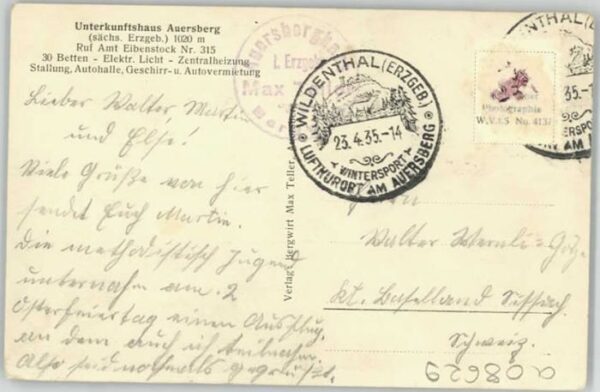 Unterkunftshaus Auersberg
(sächs. Erzgeb.) 1020 m
Ruf Amt Eibenstock Nr. 315
30 Betten - Elektr. Licht - Zentralheizung
Stallung, Autohalle, Geschirr- u. Autovermietung
Lieber Walter Martin
und Else!
Viele Grüße von hier
sendet Euch Martin.
Die methodistisch Jugend
unternahm am 2
Osterfeiertag einen Ausflug,
an dem auch ich teilnahm.
Also seid nochmals gegrüßt.
Verlag: Bergwirt Max Teller
Auersberghaus
i. Erzgeb.
Max Teller
WILDENTHAL (ERZGEB.)
23.4.35.-14
WINTERSPORT
LUFTKURORT AM AUERSBERG
WILDENTHAL (E
35.-1
ERSPORT
AM AU
Photographie
W.V.65 No. 4137
Walter Wernli-
Kt. Baselland Sissach
Schweiz.
a08629